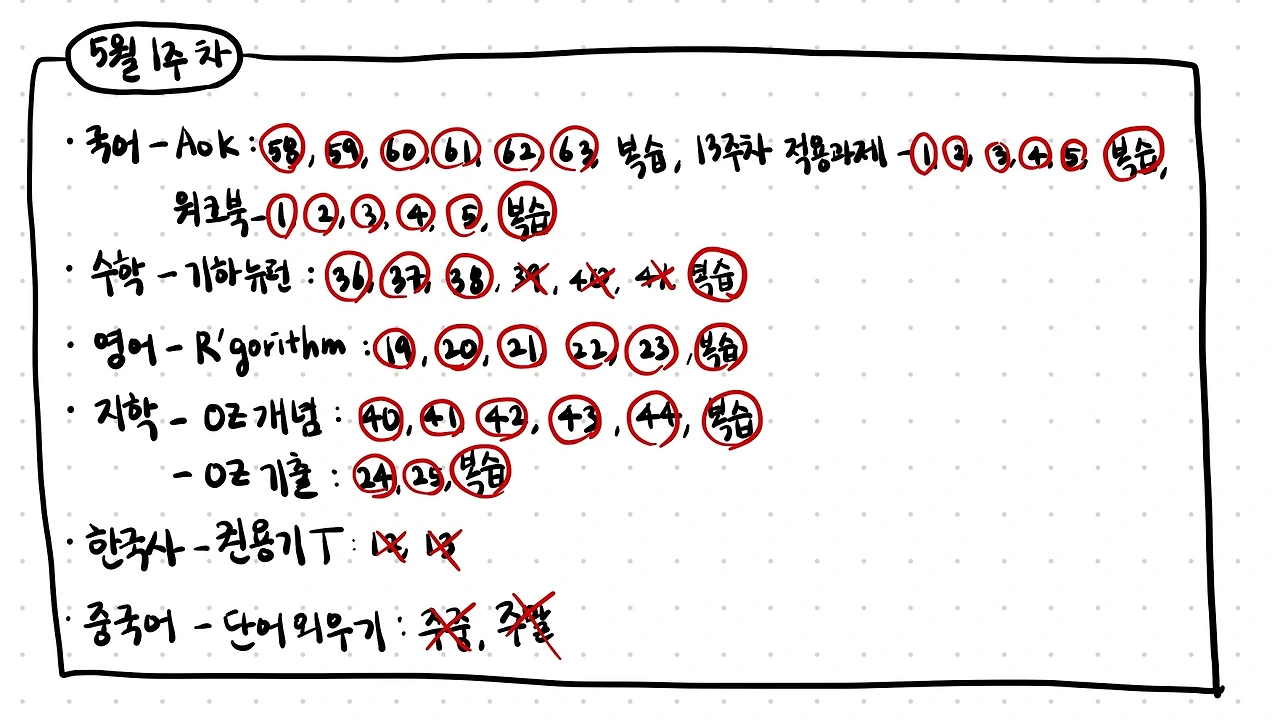 5월 1주차
· 국어 - AOK : 58, 59, 60, 61, 62, 63, 복습, 13주차 적용과제 - 1, 2, 3, 4, 5, 복습,
워크북 - 1, 2, 3, 4, 5, 복습
· 수학 - 기하뉴런 : 36, 37, 38, 39, 40, 41 복습
· 영어 - R'gorithm : 19, 20, 21, 22, 23, 복습
· 지학 - OZ개념 : 40, 41, 42, 43, 44, 복습
- OZ기출 : 24, 25, 복습
· 한국사 - 권용기T : 12, 13
· 중국어 - 단어외우기 : 주중, 주말